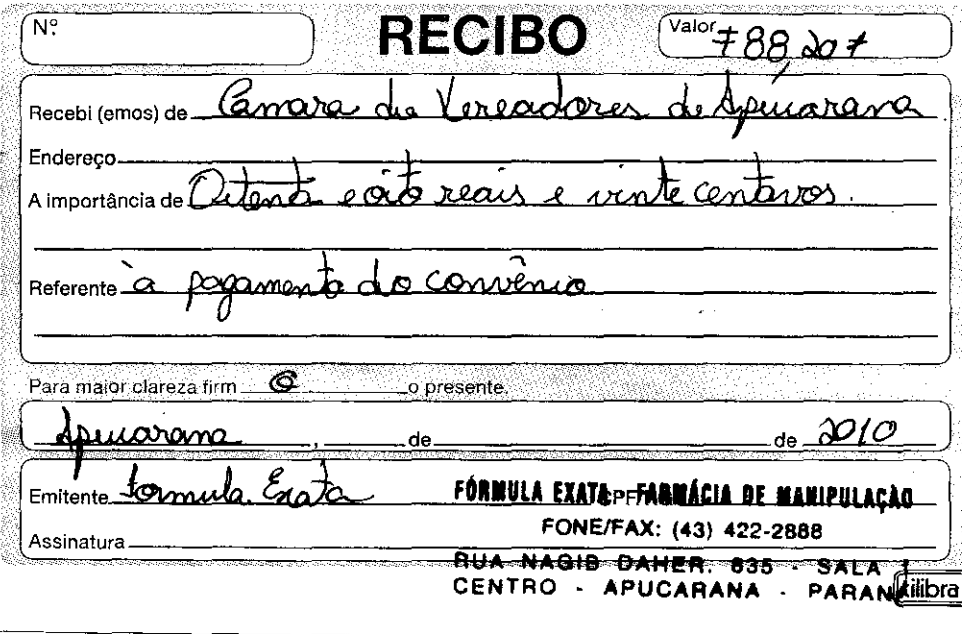 Nº RECIBO Valor ≠88,20≠
Recebi (emos) de Câmara de Vereadores de Apucarana
Endereço
A importância de Oitenta e oito reais e vinte centavos.
Referente à pagamento do convênio
Para maior clareza firm o o presente.
Apucarana , de de 2010
Emitente Formula Exata FÓRMULA EXATA FARMÁCIA DE MANIPULAÇÃO
FONE/FAX: (43) 422-2888
Assinatura
RUA NAGIB DAHER, 635 - SALA
CENTRO - APUCARANA - PARANÁ tilibra